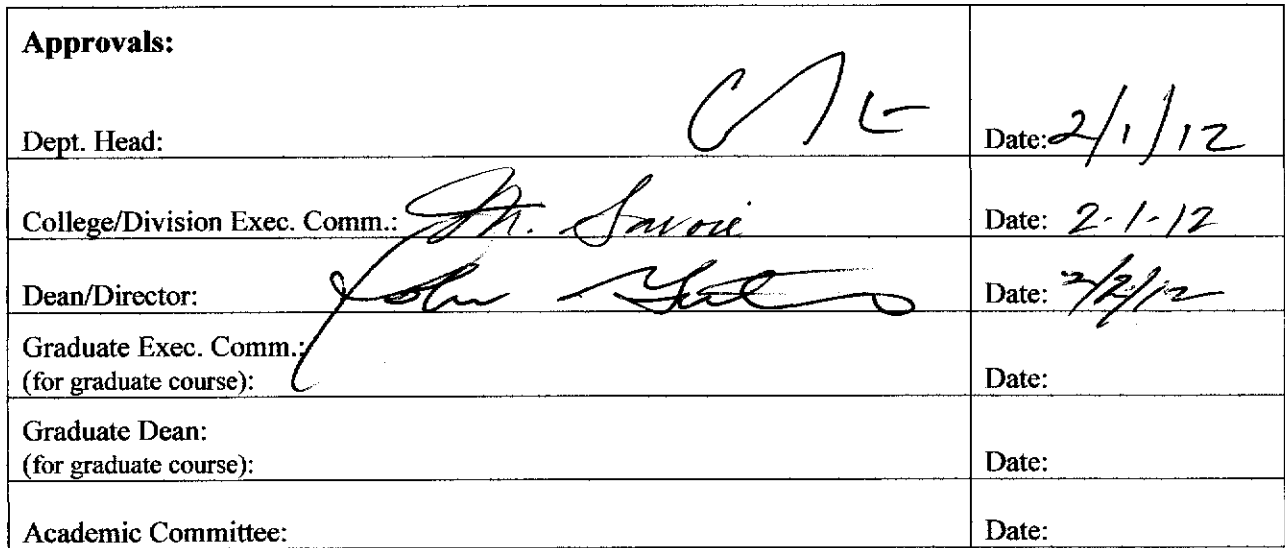 Approvals:
Dept. Head: Date: 2/1/12
College/Division Exec. Comm.: M. Savoie Date: 2-1-12
Dean/Director: John Date: 2/2/12
Graduate Exec. Comm.:
(for graduate course): Date:
Graduate Dean:
(for graduate course): Date:
Academic Committee: Date: